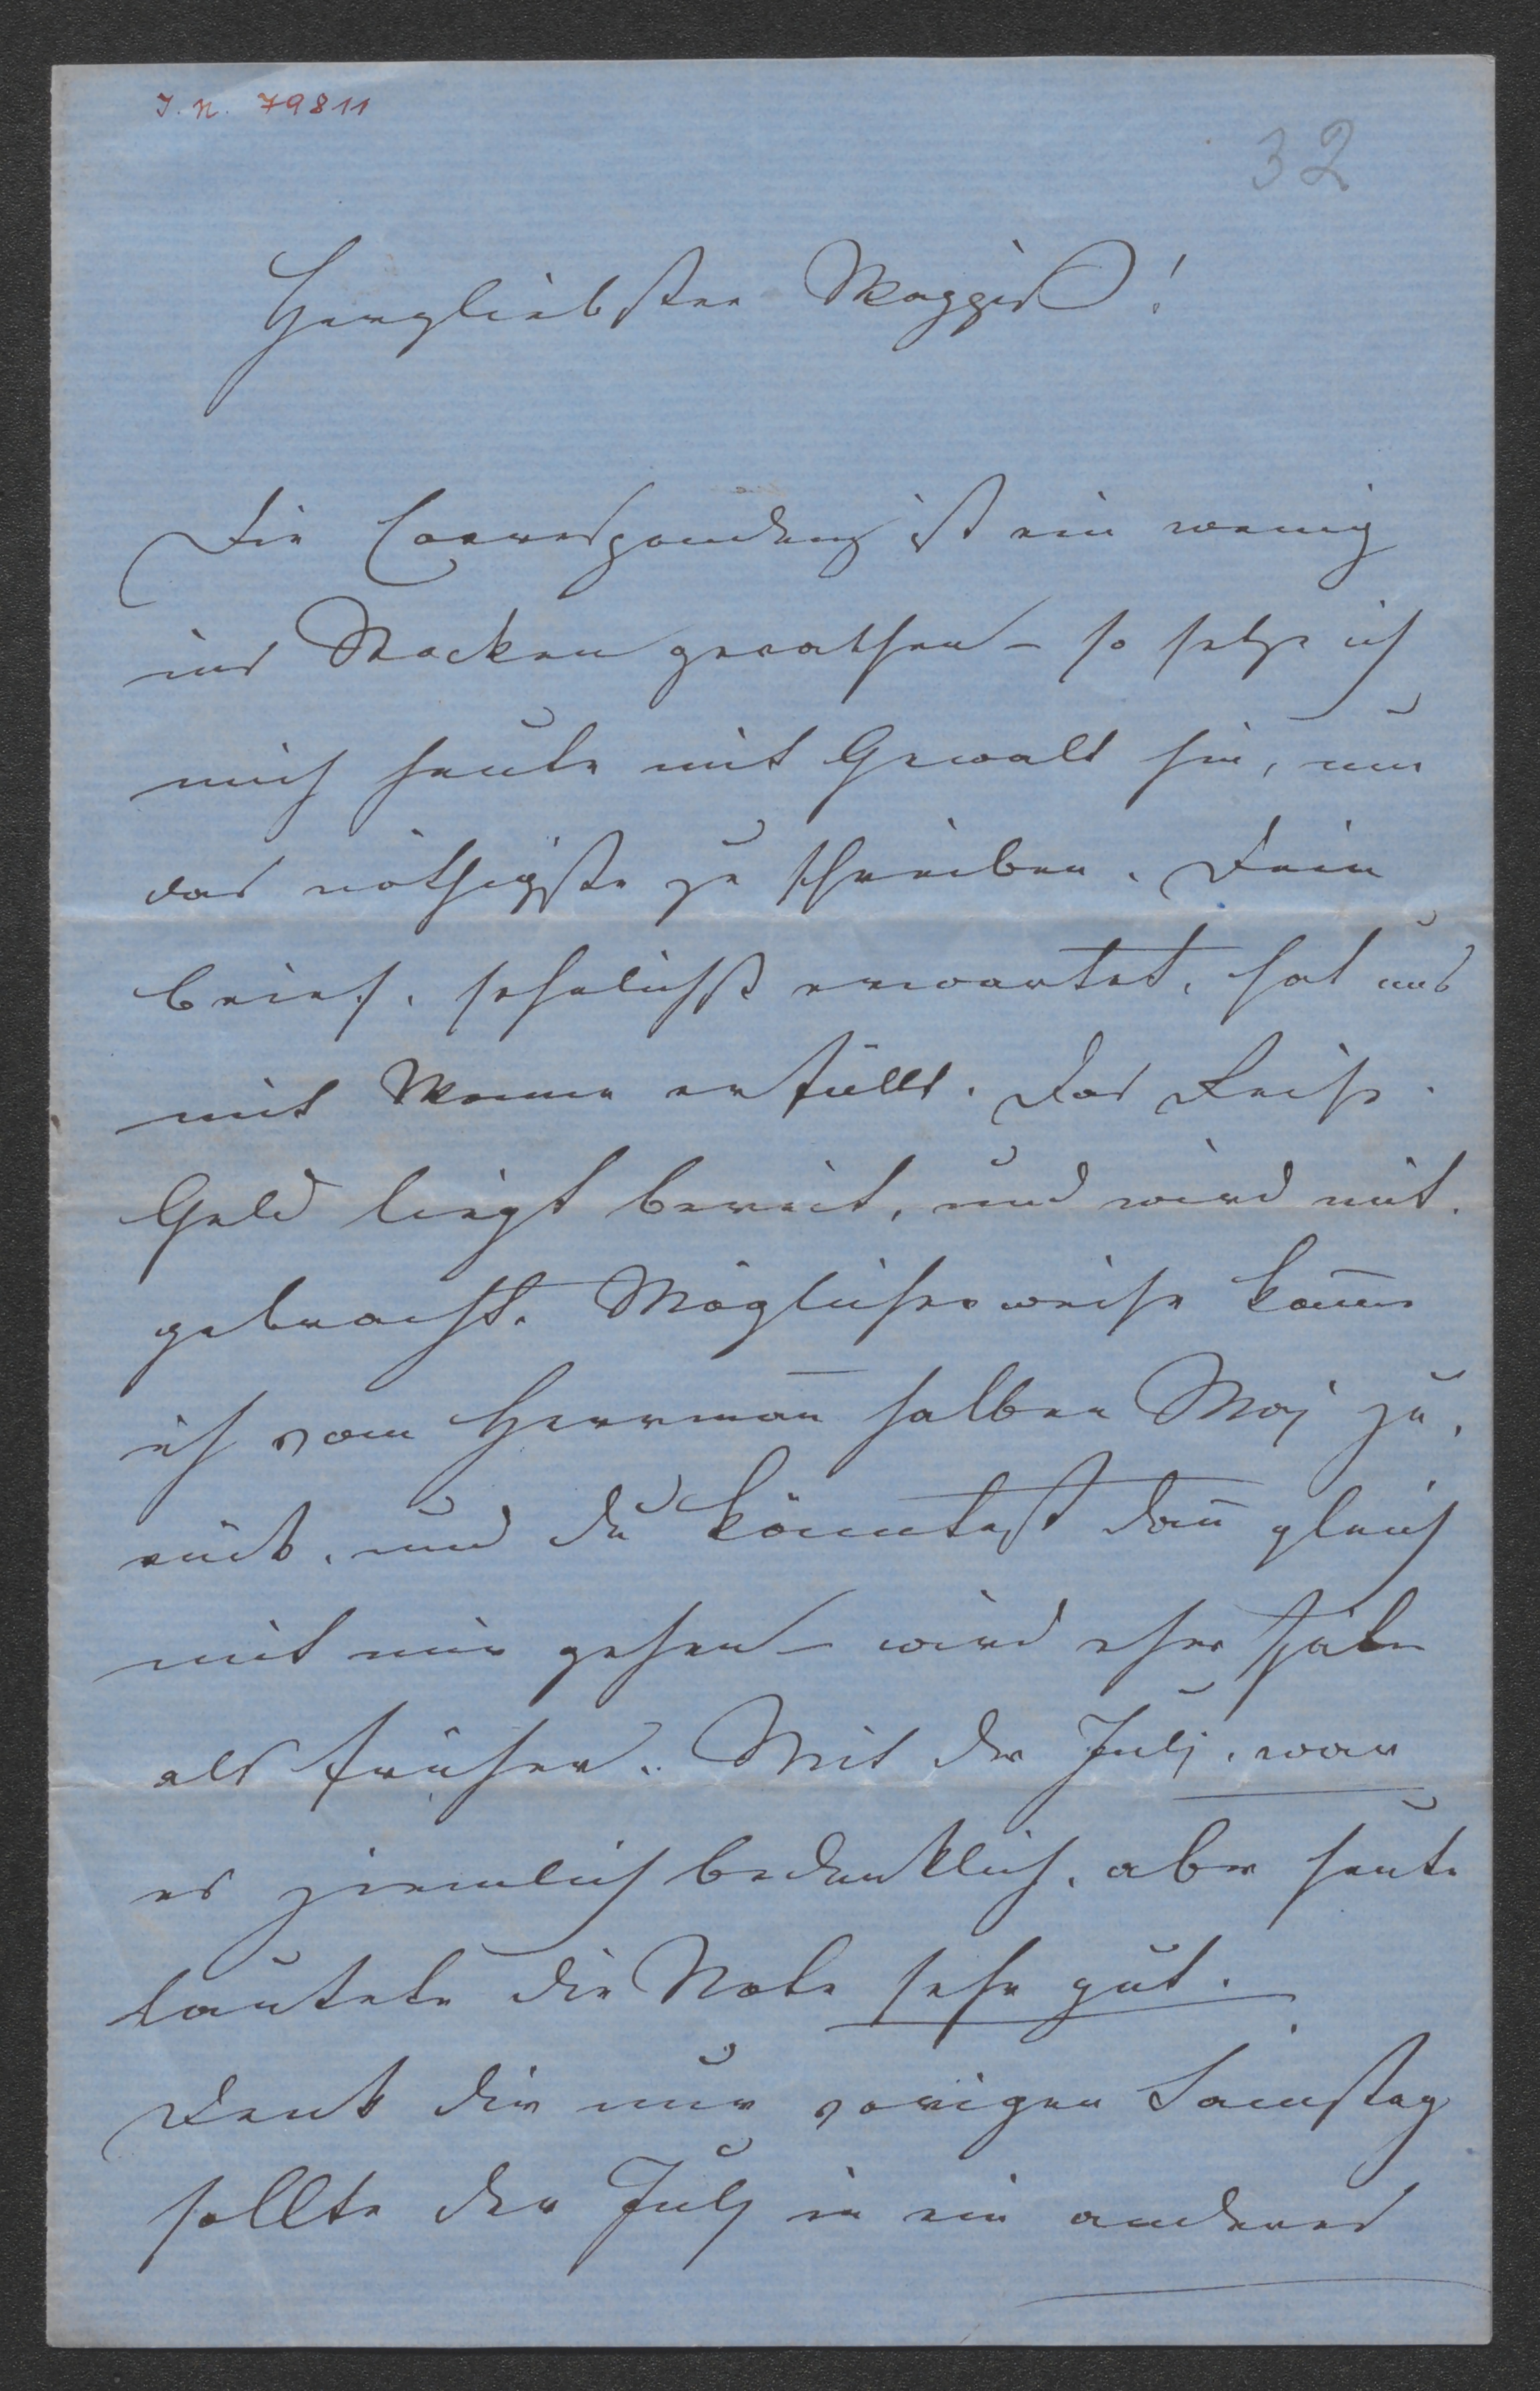 I. N. 79811
32
Herzliebster
Die Correspondenz ist ein wenig
ins Stocken gerathen – so setze ich
mich heute mit Gewalt hin, um
das nöthigste zu schreiben. Dein
Brief, sehnlichst erwartet, hat uns
mit Wonne erfüllt. Das Reise-
Geld liegt bereit, und wird mit-
gebracht. Möglicherweise komme
ich vom Herrmann halben Maj zu-
rück, und du könntest dann gleich
mit mir gehen – wird eher später
als früher. Mit der Julj, war
es ziemlich bedenklich, aber heute
lautete die Note sehr gut.
Denk dir nur vorigen Samstag
sollte der Julj in ein anderes